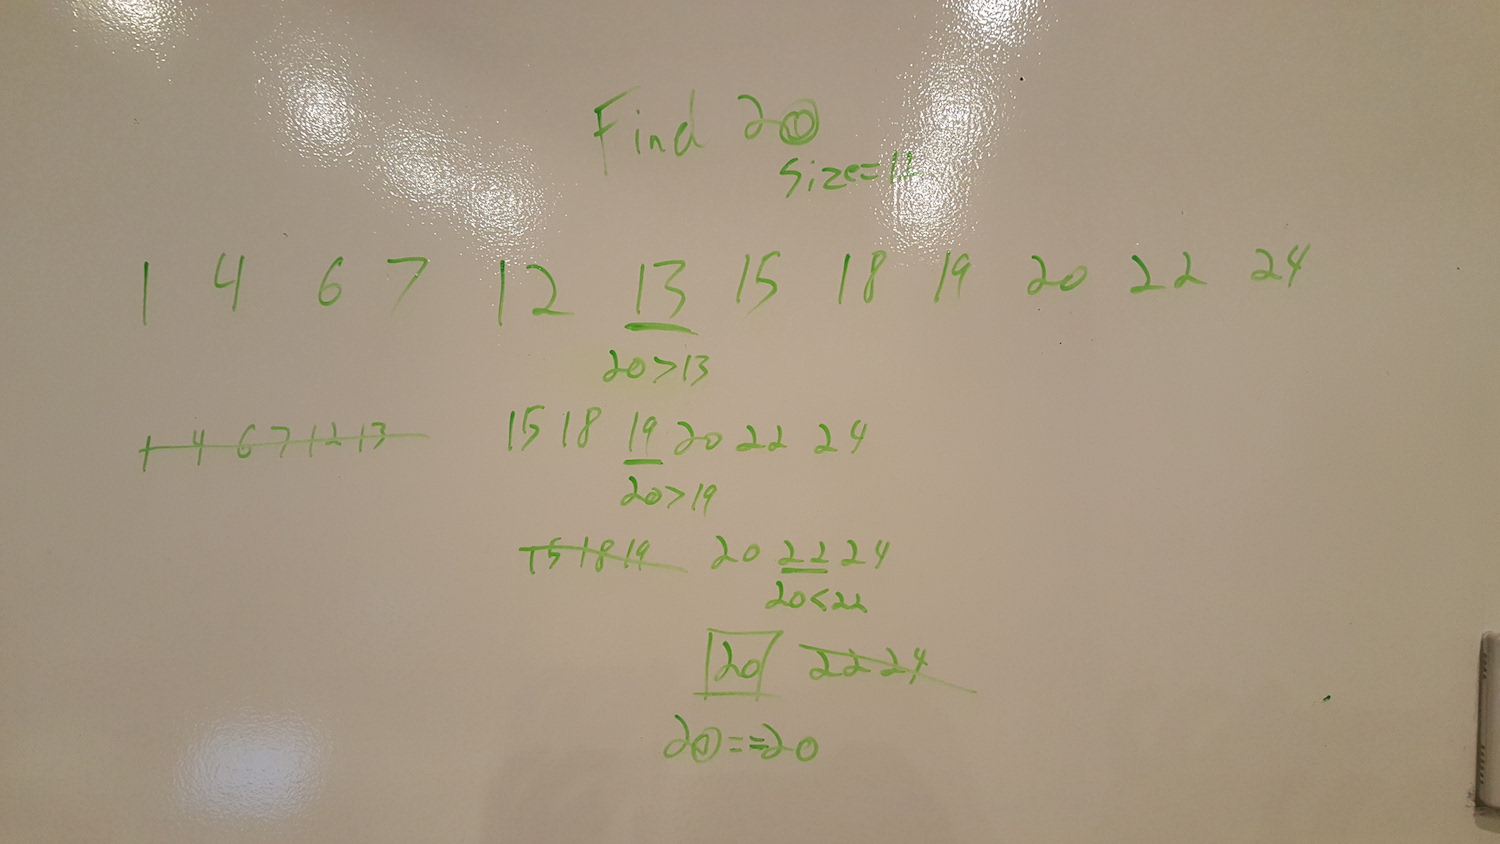 Find 20
1 4 6 7 12 13 15 18 19 20 22 24
20>13
1 4 6 7 12 13 15 18 19 20 22 24
20>19
15 18 19 20 22 24
20<22
20 22 24
20==20